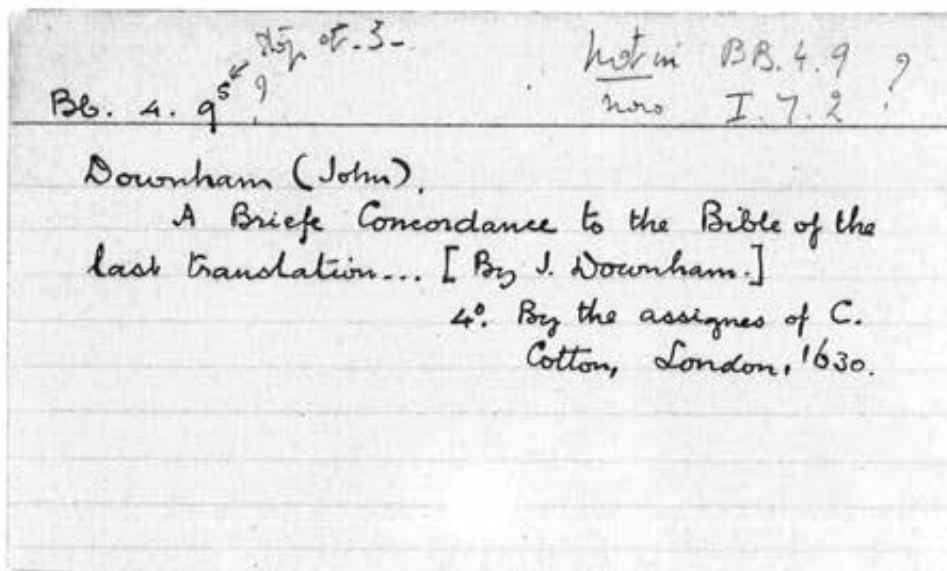 not in BB. 4. 9 ?
now I. 7. 2
Bb. 4. 9⁵ ?
Downham (John).
A Briefe Concordance to the Bible of the
last translation... [By J. Downham.]
4º. By the assignes of C.
Cotton, London, 1630.